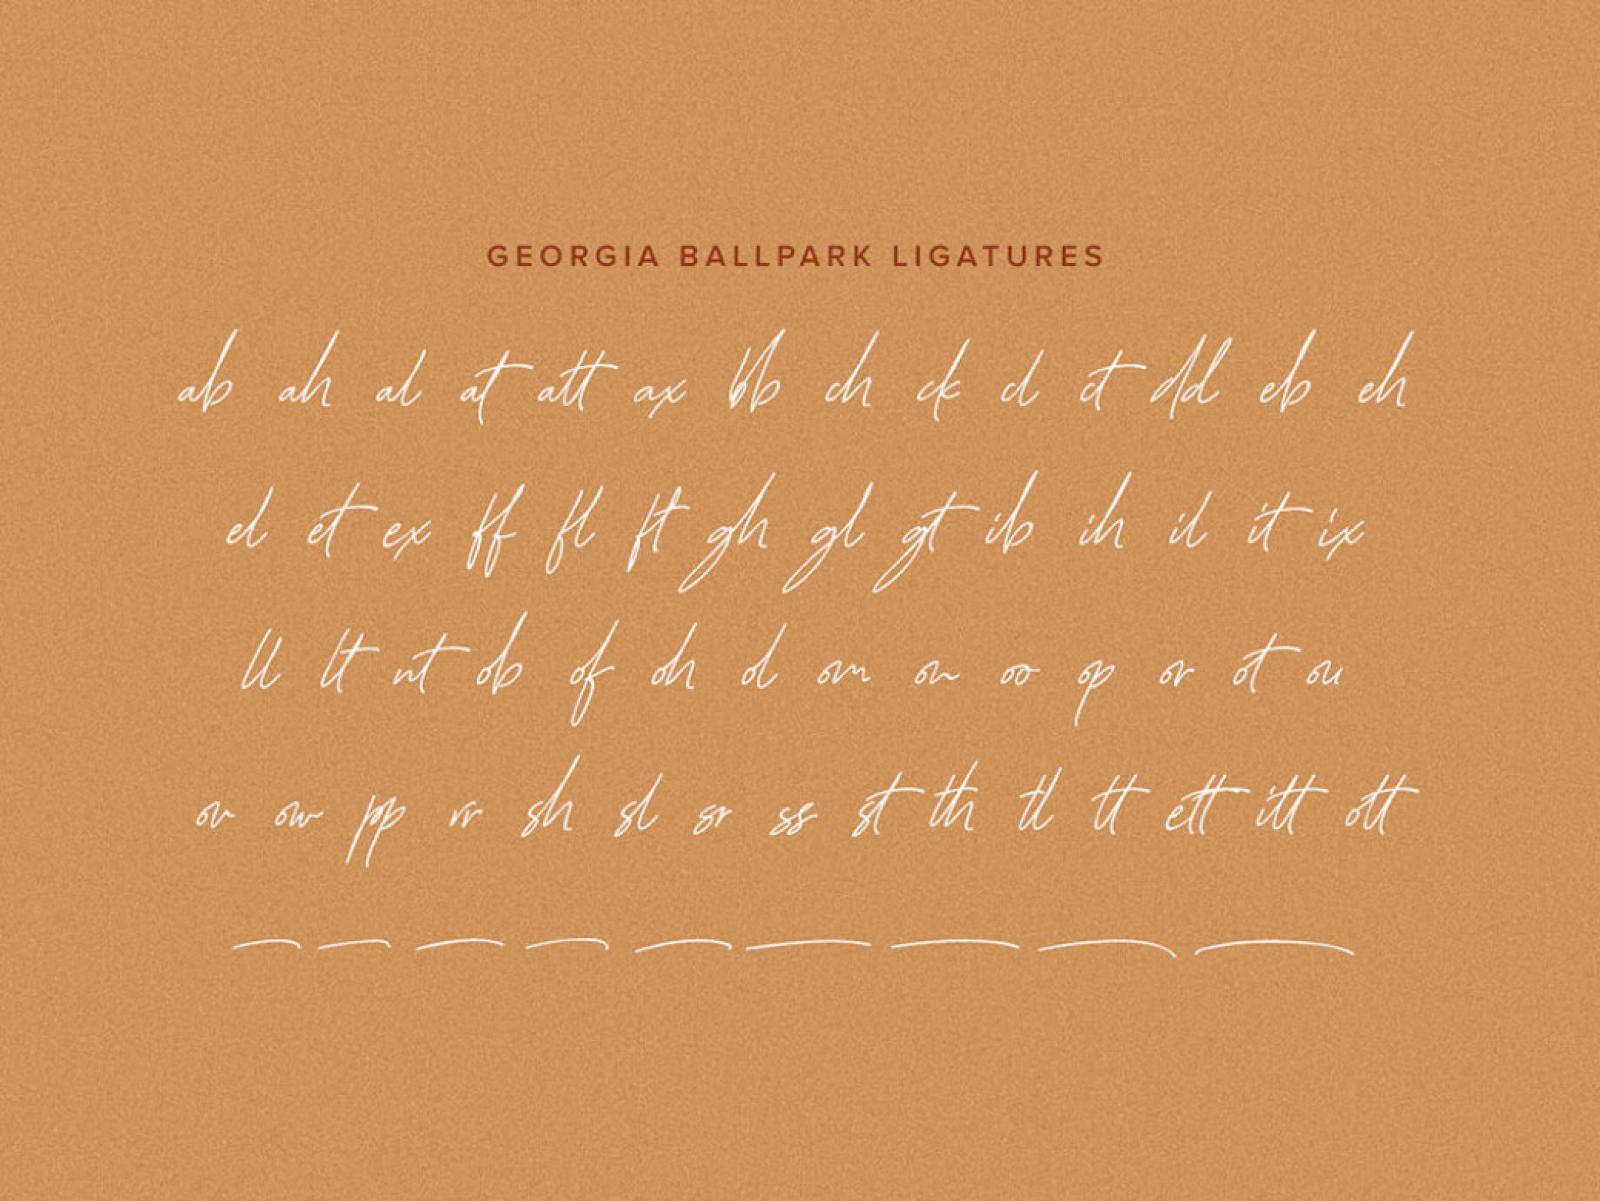 GEORGIA BALLPARK LIGATURES
ab ah al at att ax bb ch ck cl ct dd eb eh
el et ex ff fl ft gh gl gt ib ih il it ix
ll lt nt ob of oh ol om on oo op or ot ou
ov ow pp rr sh sl sr ss st th tl tt ett itt ott